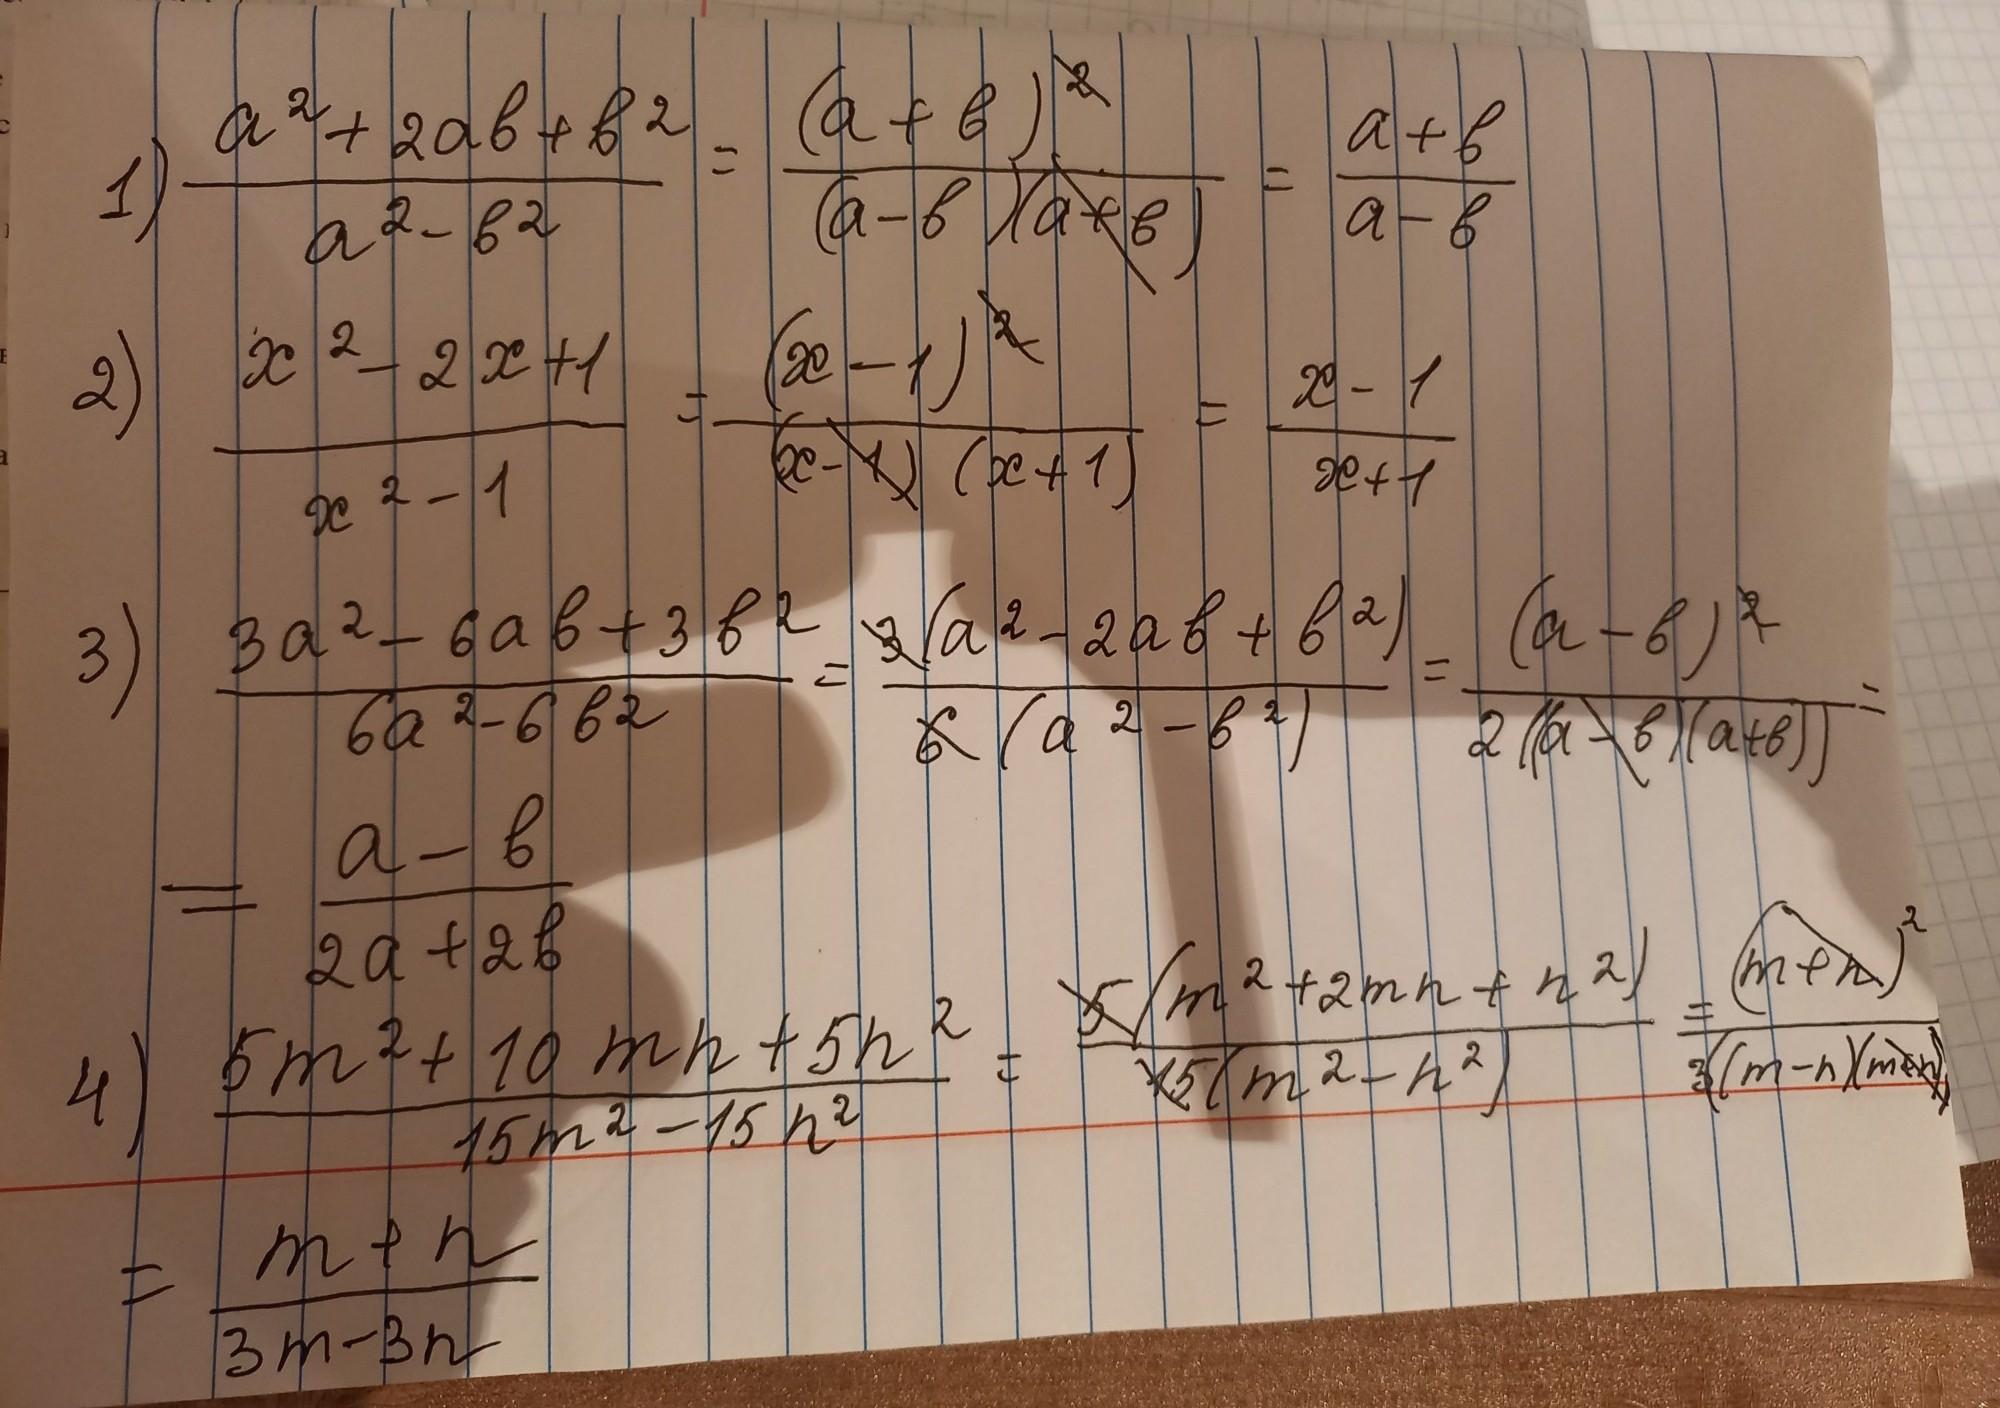 1) (a² + 2ab + b²)/(a² - b²) = (a + b)²/((a - b)(a + b)) = (a + b)/(a - b)
2) (x² - 2x + 1)/(x² - 1) = (x - 1)²/((x - 1)(x + 1)) = (x - 1)/(x + 1)
3) (3a² - 6ab + 3b²)/(6a² - 6b²) = 3(a² - 2ab + b²)/(6(a² - b²)) = (a - b)²/(2((a - b)(a + b))) =
= (a - b)/(2a + 2b)
4) (5m² + 10mn + 5n²)/(15m² - 15n²) = 5(m² + 2mn + n²)/(15(m² - n²)) = (m + n)²/(3((m - n)(m + n)))
= (m + n)/(3m - 3n)